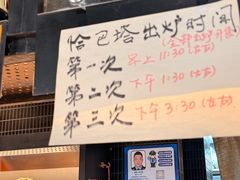 恰巴塔出炉时间
第一次 早上11:30(左右)
第二次 下午1:30(左右)
第三次 下午3:30(左右)